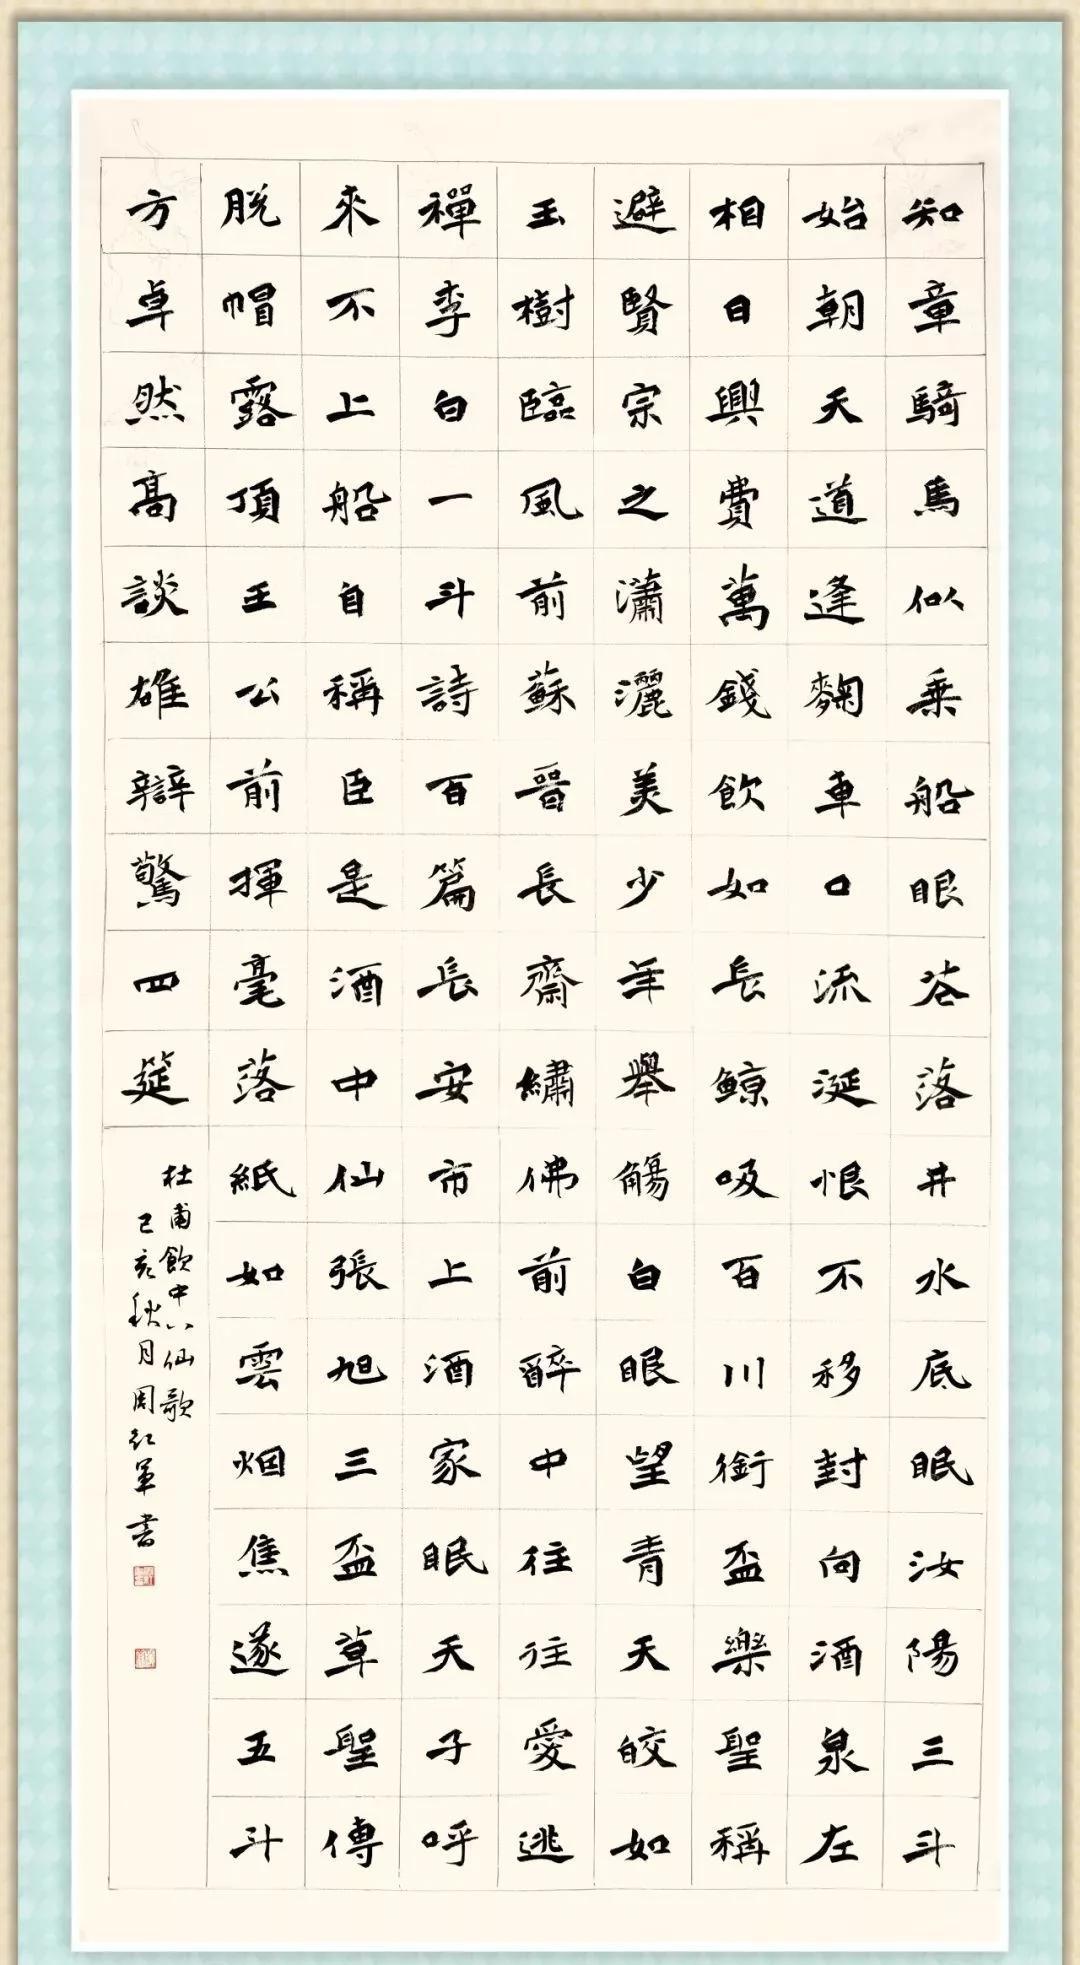 知章騎馬似乘船眼花落井水底眠汝陽三斗
始朝天道逢麴車口流涎恨不移封向酒泉左
相日興費萬錢飲如長鯨吸百川銜盃樂聖稱
避賢宗之瀟灑美少年舉觴白眼望青天皎如
玉樹臨風前蘇晉長齋繡佛前醉中往往愛逃
禪李白一斗詩百篇長安市上酒家眠天子呼
來不上船自稱臣是酒中仙張旭三盃草聖傳
脱帽露頂王公前揮毫落紙如雲烟焦遂五斗
方卓然高談雄辯驚四筵
杜甫飲中八仙歌
己亥秋月周红軍書